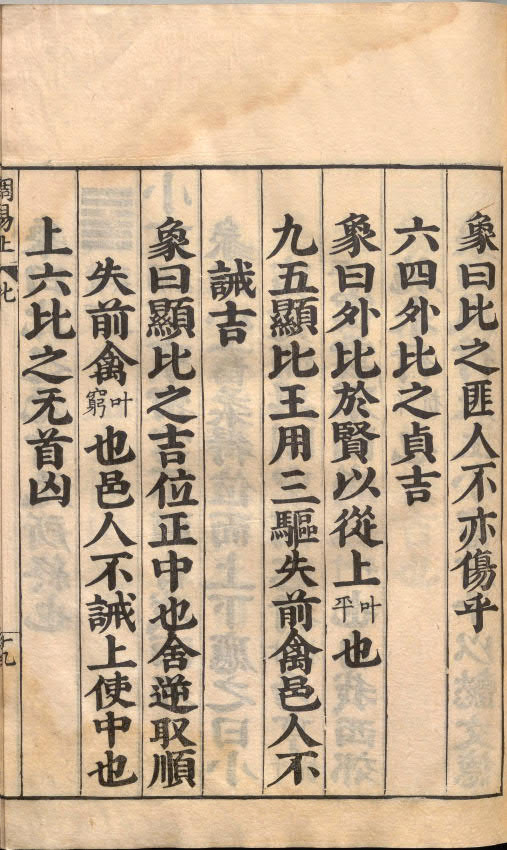 象曰比之匪人不亦傷乎
六四外比之貞吉
象曰外比於賢以從上叶平也
九五顯比王用三驅失前禽邑人不
誡吉
象曰顯比之吉位正中也舍逆取順
失前禽叶窮也邑人不誡上使中也
上六比之无首凶
周易上 比
十九